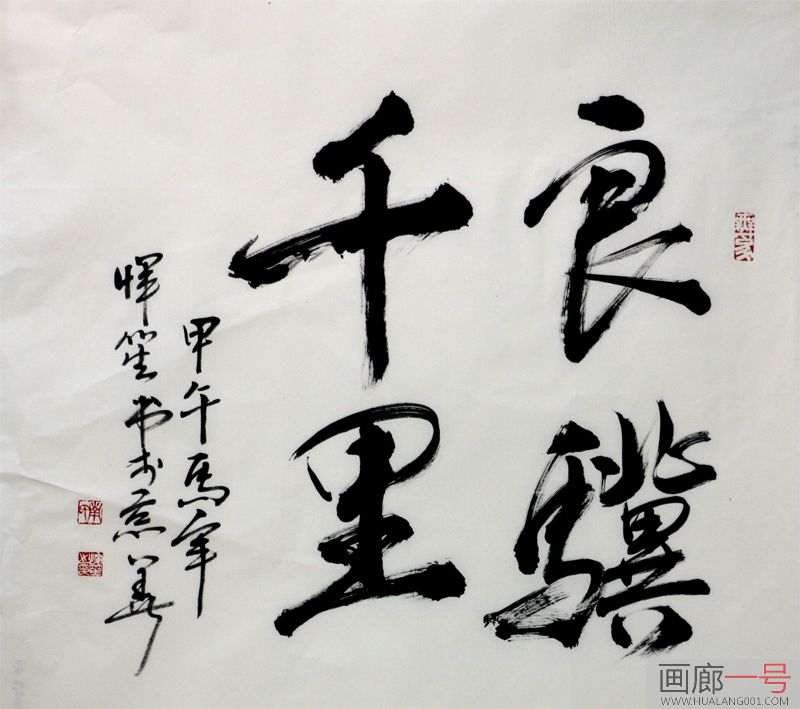 良骥
千里
甲午马年
恽笙书
画廊一号
WWW.HUALANG001.COM